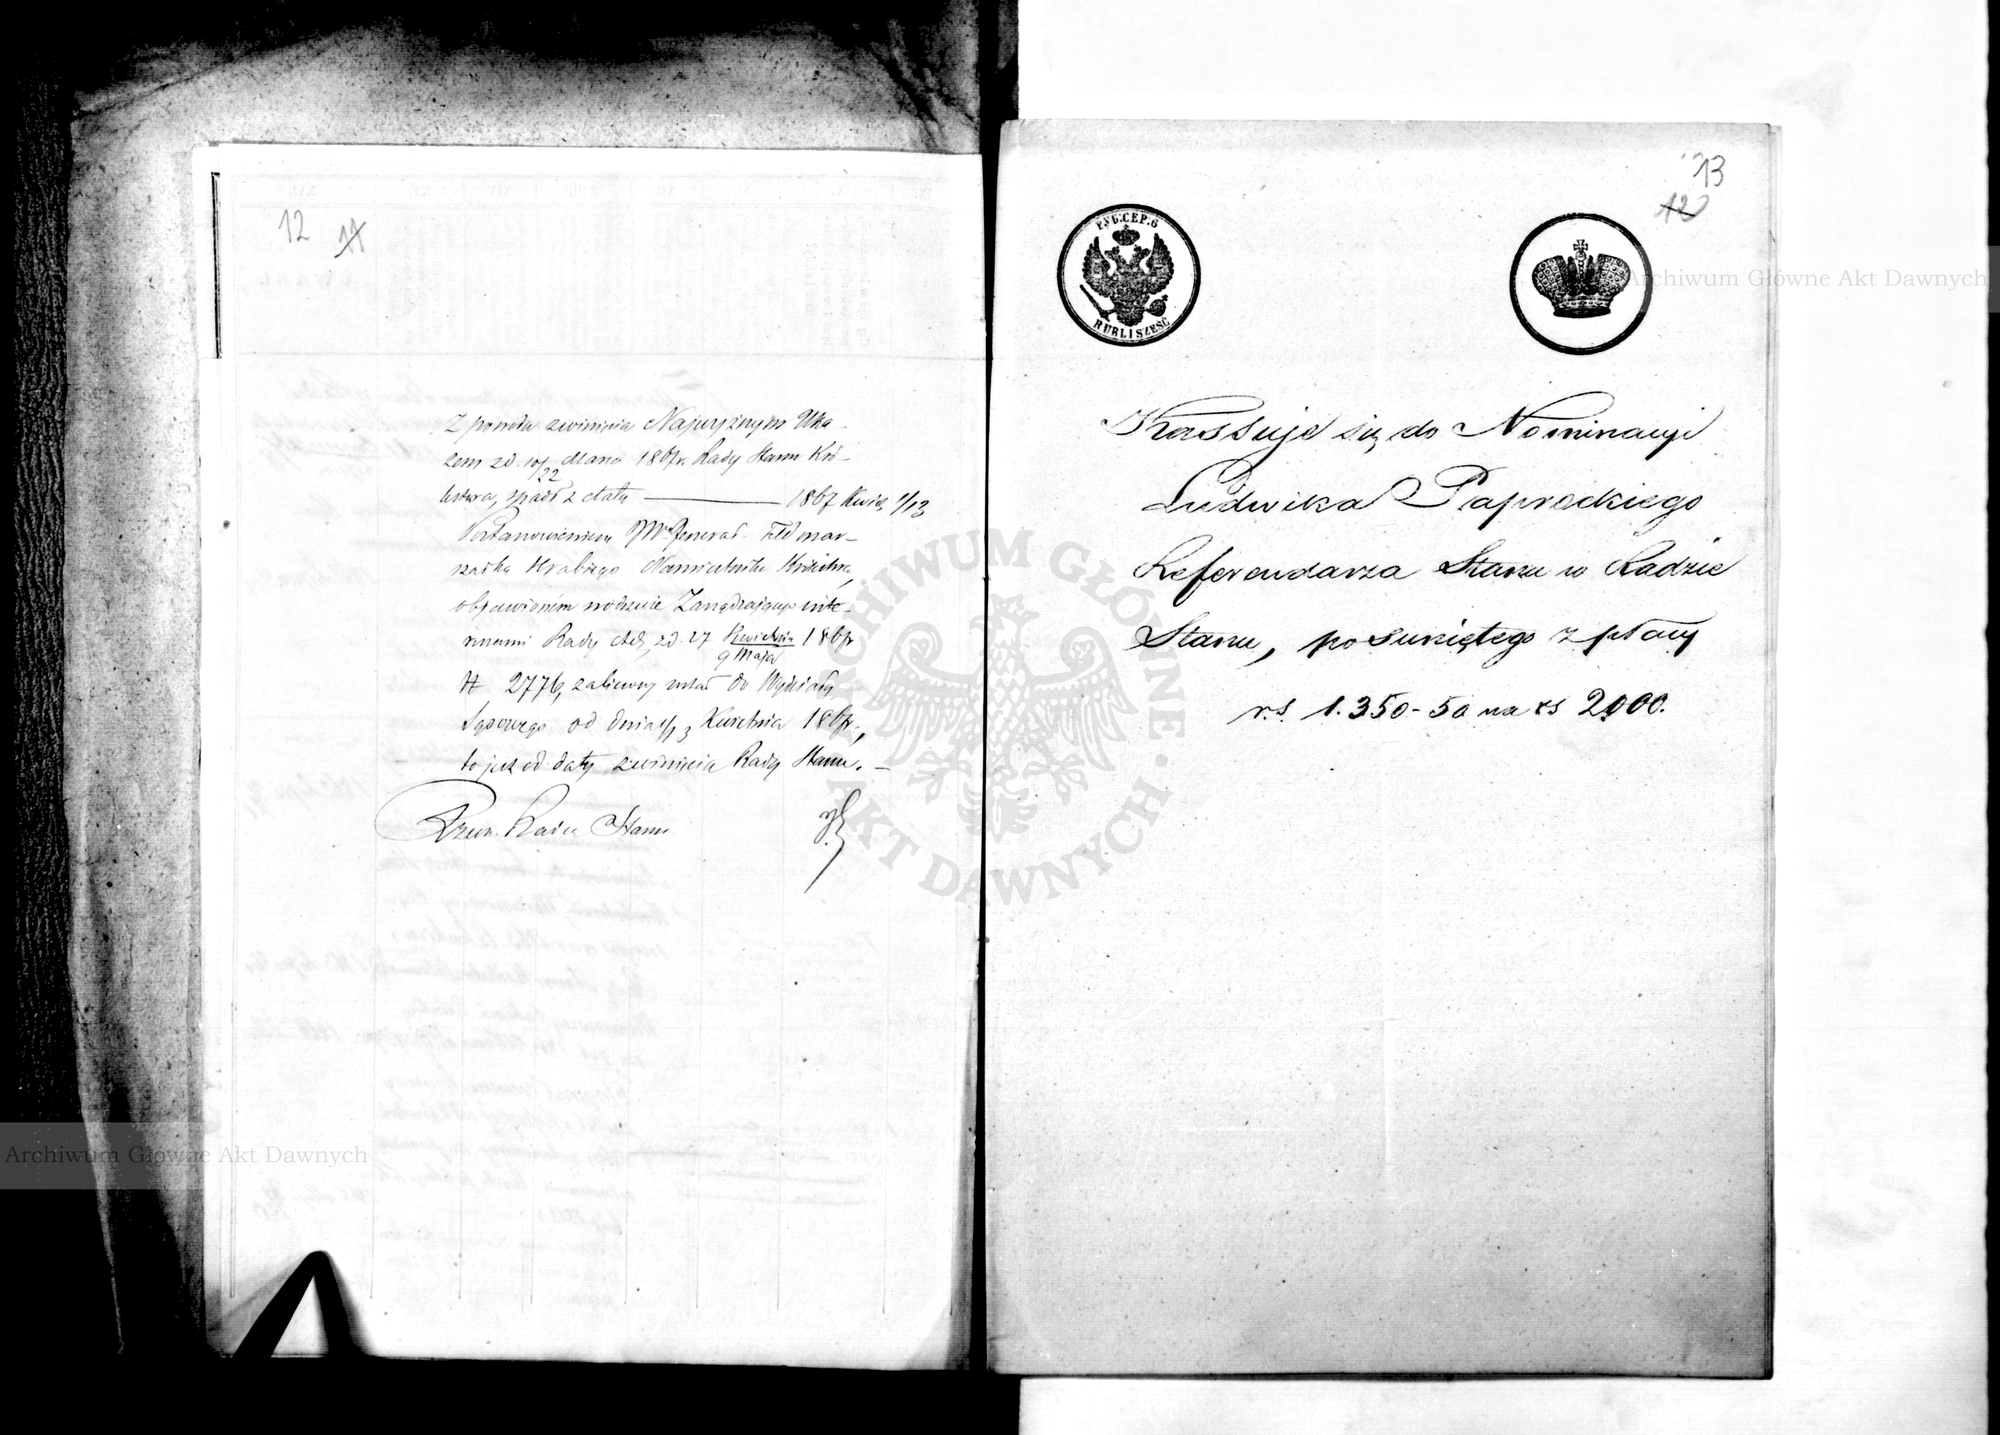 12 11
Z powodu zwinięcia Najwyższym Uka-
zem z d. 10/22 Marca 1867 r. Rady Stanu Kró-
lestwa, spadł z etatu — 1867 Kwie. 1/13
Postanowieniem JW Generał-Feldmar-
szałka Hrabiego Namiestnika Królestwa,
objawioném w odezwie Zarządzającego inte-
resami Rady z d. 27 Kwietnia/9 Maja 1867 r.
N 2776, zaliczony został do Wydziału
od dnia 1/13 Kwietnia 1867 r.,
to jest od daty zwinięcia Rady Stanu. —
Rada Stanu
13
12
RUB. CEP. 6
RUBLI SZESC
Kassuje się do Nominacyi
Ludwika Paprockiego
Referendarza Stanu w Radzie
Stanu, posuniętego z płacy
r.s. 1.350-50 na rs 2000.
Archiwum Główne Akt Dawnych
Archiwum Główne Akt Dawnych
ARCHIWUM GŁÓWNE · AKT DAWNYCH ·